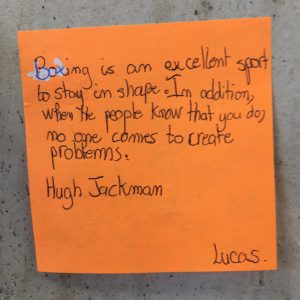 Boxing is an excellent sport
to stay in shape. In addition,
when the people know that you do,
no one comes to create
problems.
Hugh Jackman
Lucas.